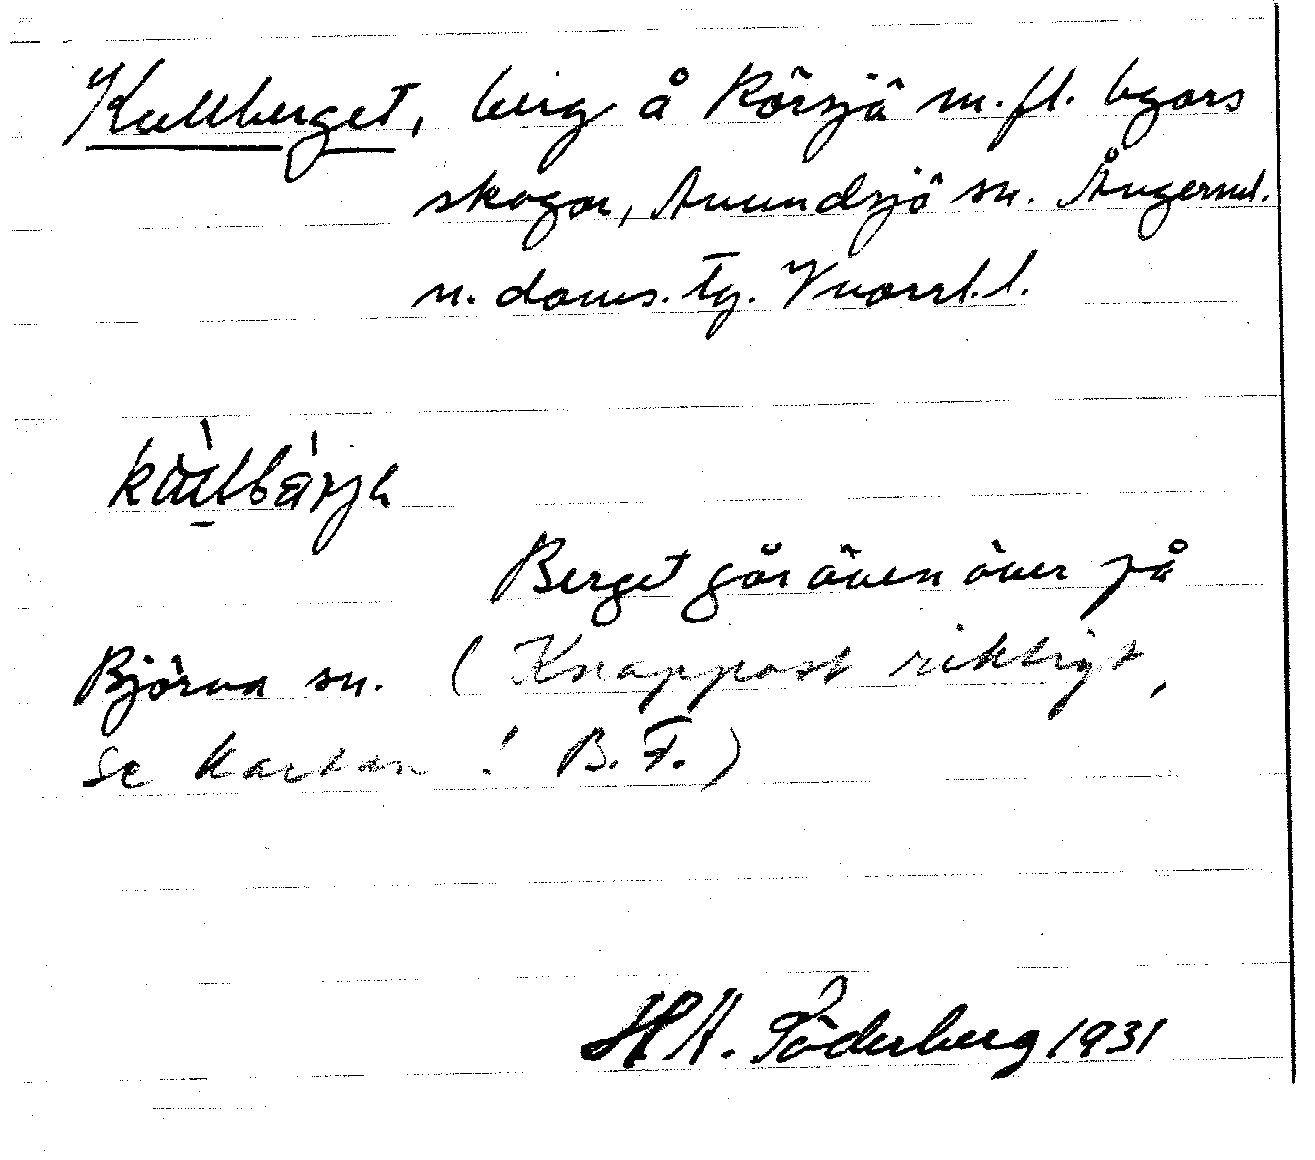 Kullberget, berg å Rörsjö m.fl. byars
skogar, Anundsjö sn. Ångerml.
n. doms. tg. Vnorrl.l.
Berget går även över på
Björna sn. (Knappast riktigt,
se kartan! B.F.)
H A. Söderberg 1931